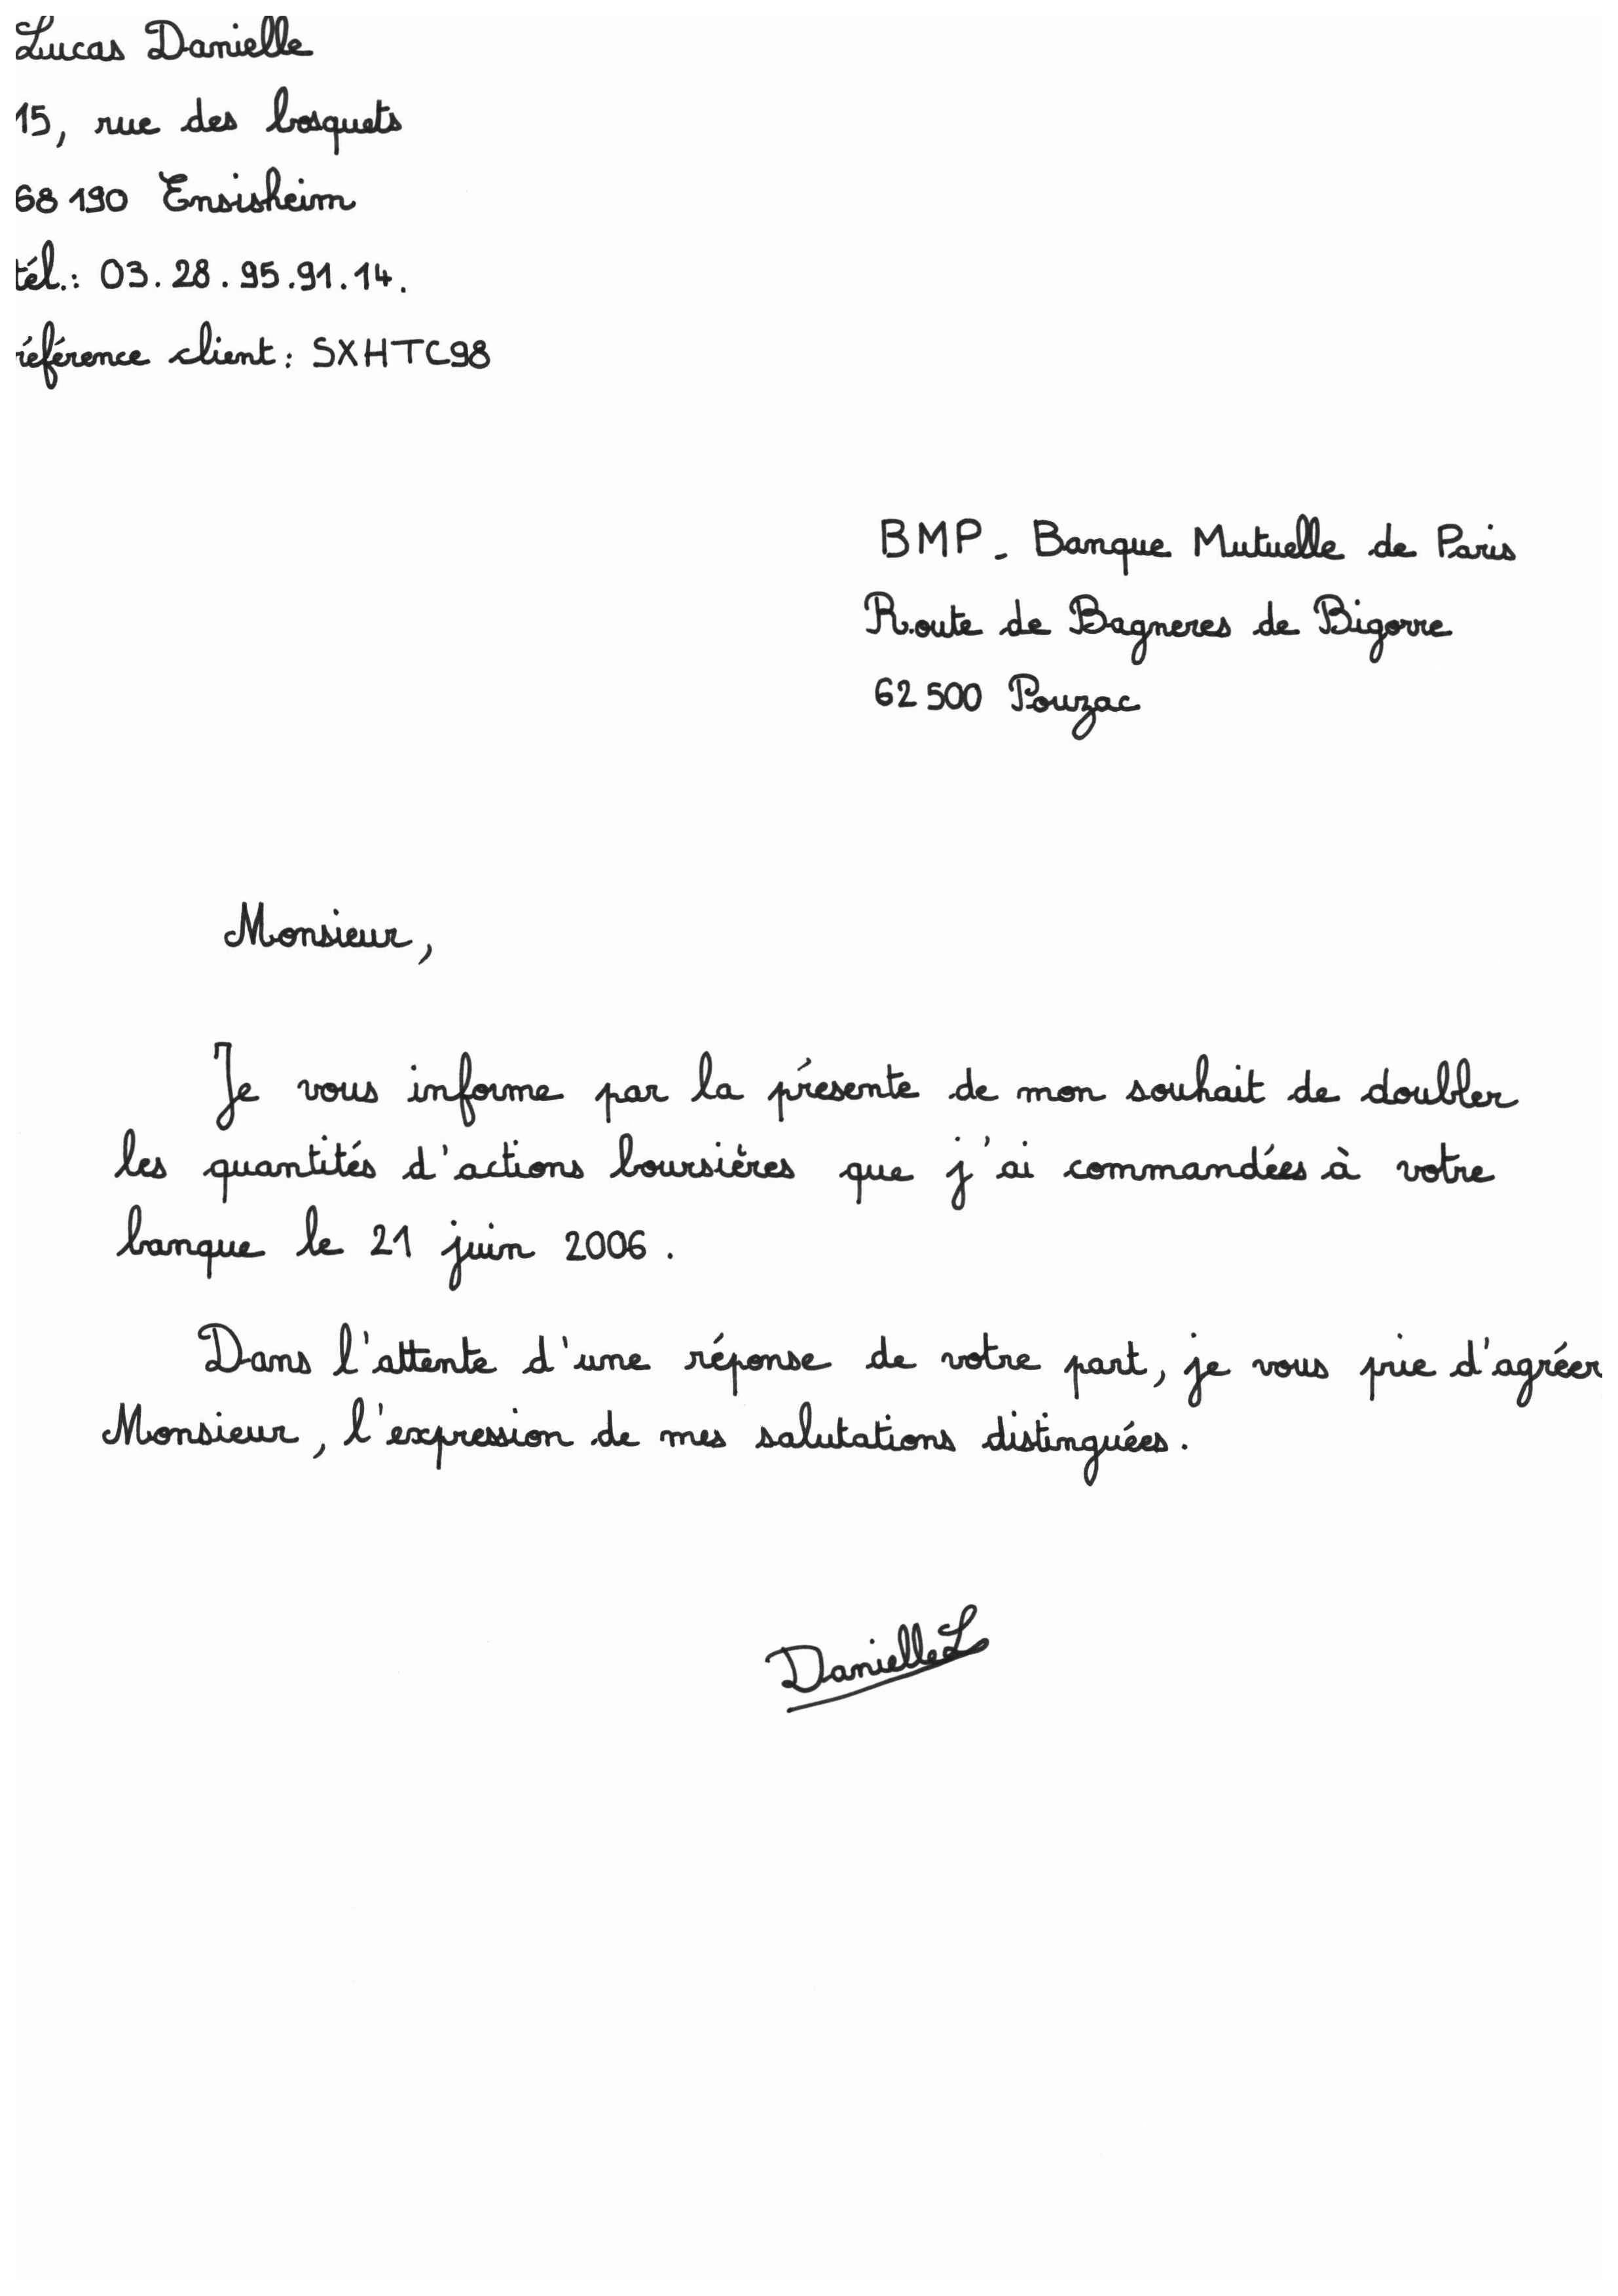 Lucas Danielle
15, rue des bosquets
68190 Ensisheim
tél.: 03.28.95.91.14.
référence client: SXHTC98
BMP - Banque Mutuelle de Paris
Route de Bagneres de Bigorre
62500 Pouzac
Monsieur,
Je vous informe par la présente de mon souhait de doubler
les quantités d'actions boursières que j'ai commandées à votre
banque le 21 juin 2006.
Dans l'attente d'une réponse de votre part, je vous prie d'agréer
Monsieur, l'expression de mes salutations distinguées.
Danielle L